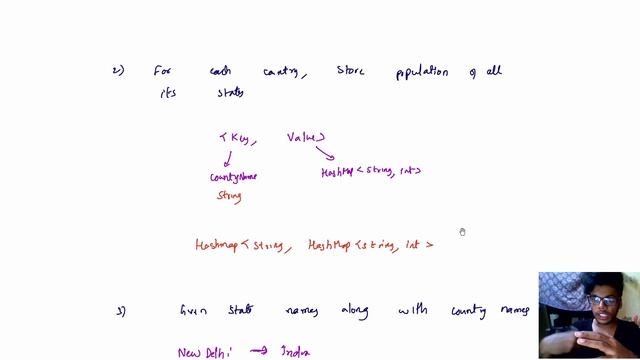 2) For each country, store population of all
its states
<Key, Value>
CountryName HashMap<String, int>
String
Hashmap<String, HashMap<String, int>
3) Given state names along with country names
New Delhi → India